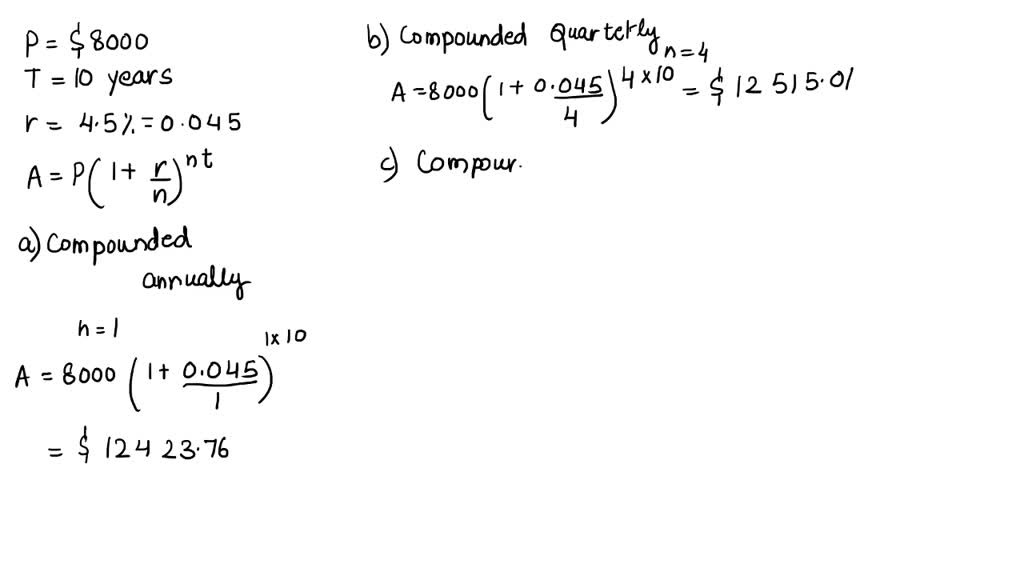 P = $8000
T = 10 years
r = 4.5% = 0.045
A = P(1 + r/n)^nt
a) Compounded
annually
n = 1
A = 8000 (1 + 0.045/1)^1x10
= $ 12423.76
b) Compounded Quarterly n=4
A = 8000(1 + 0.045/4)^4x10 = $ 12515.01
c) Compour.